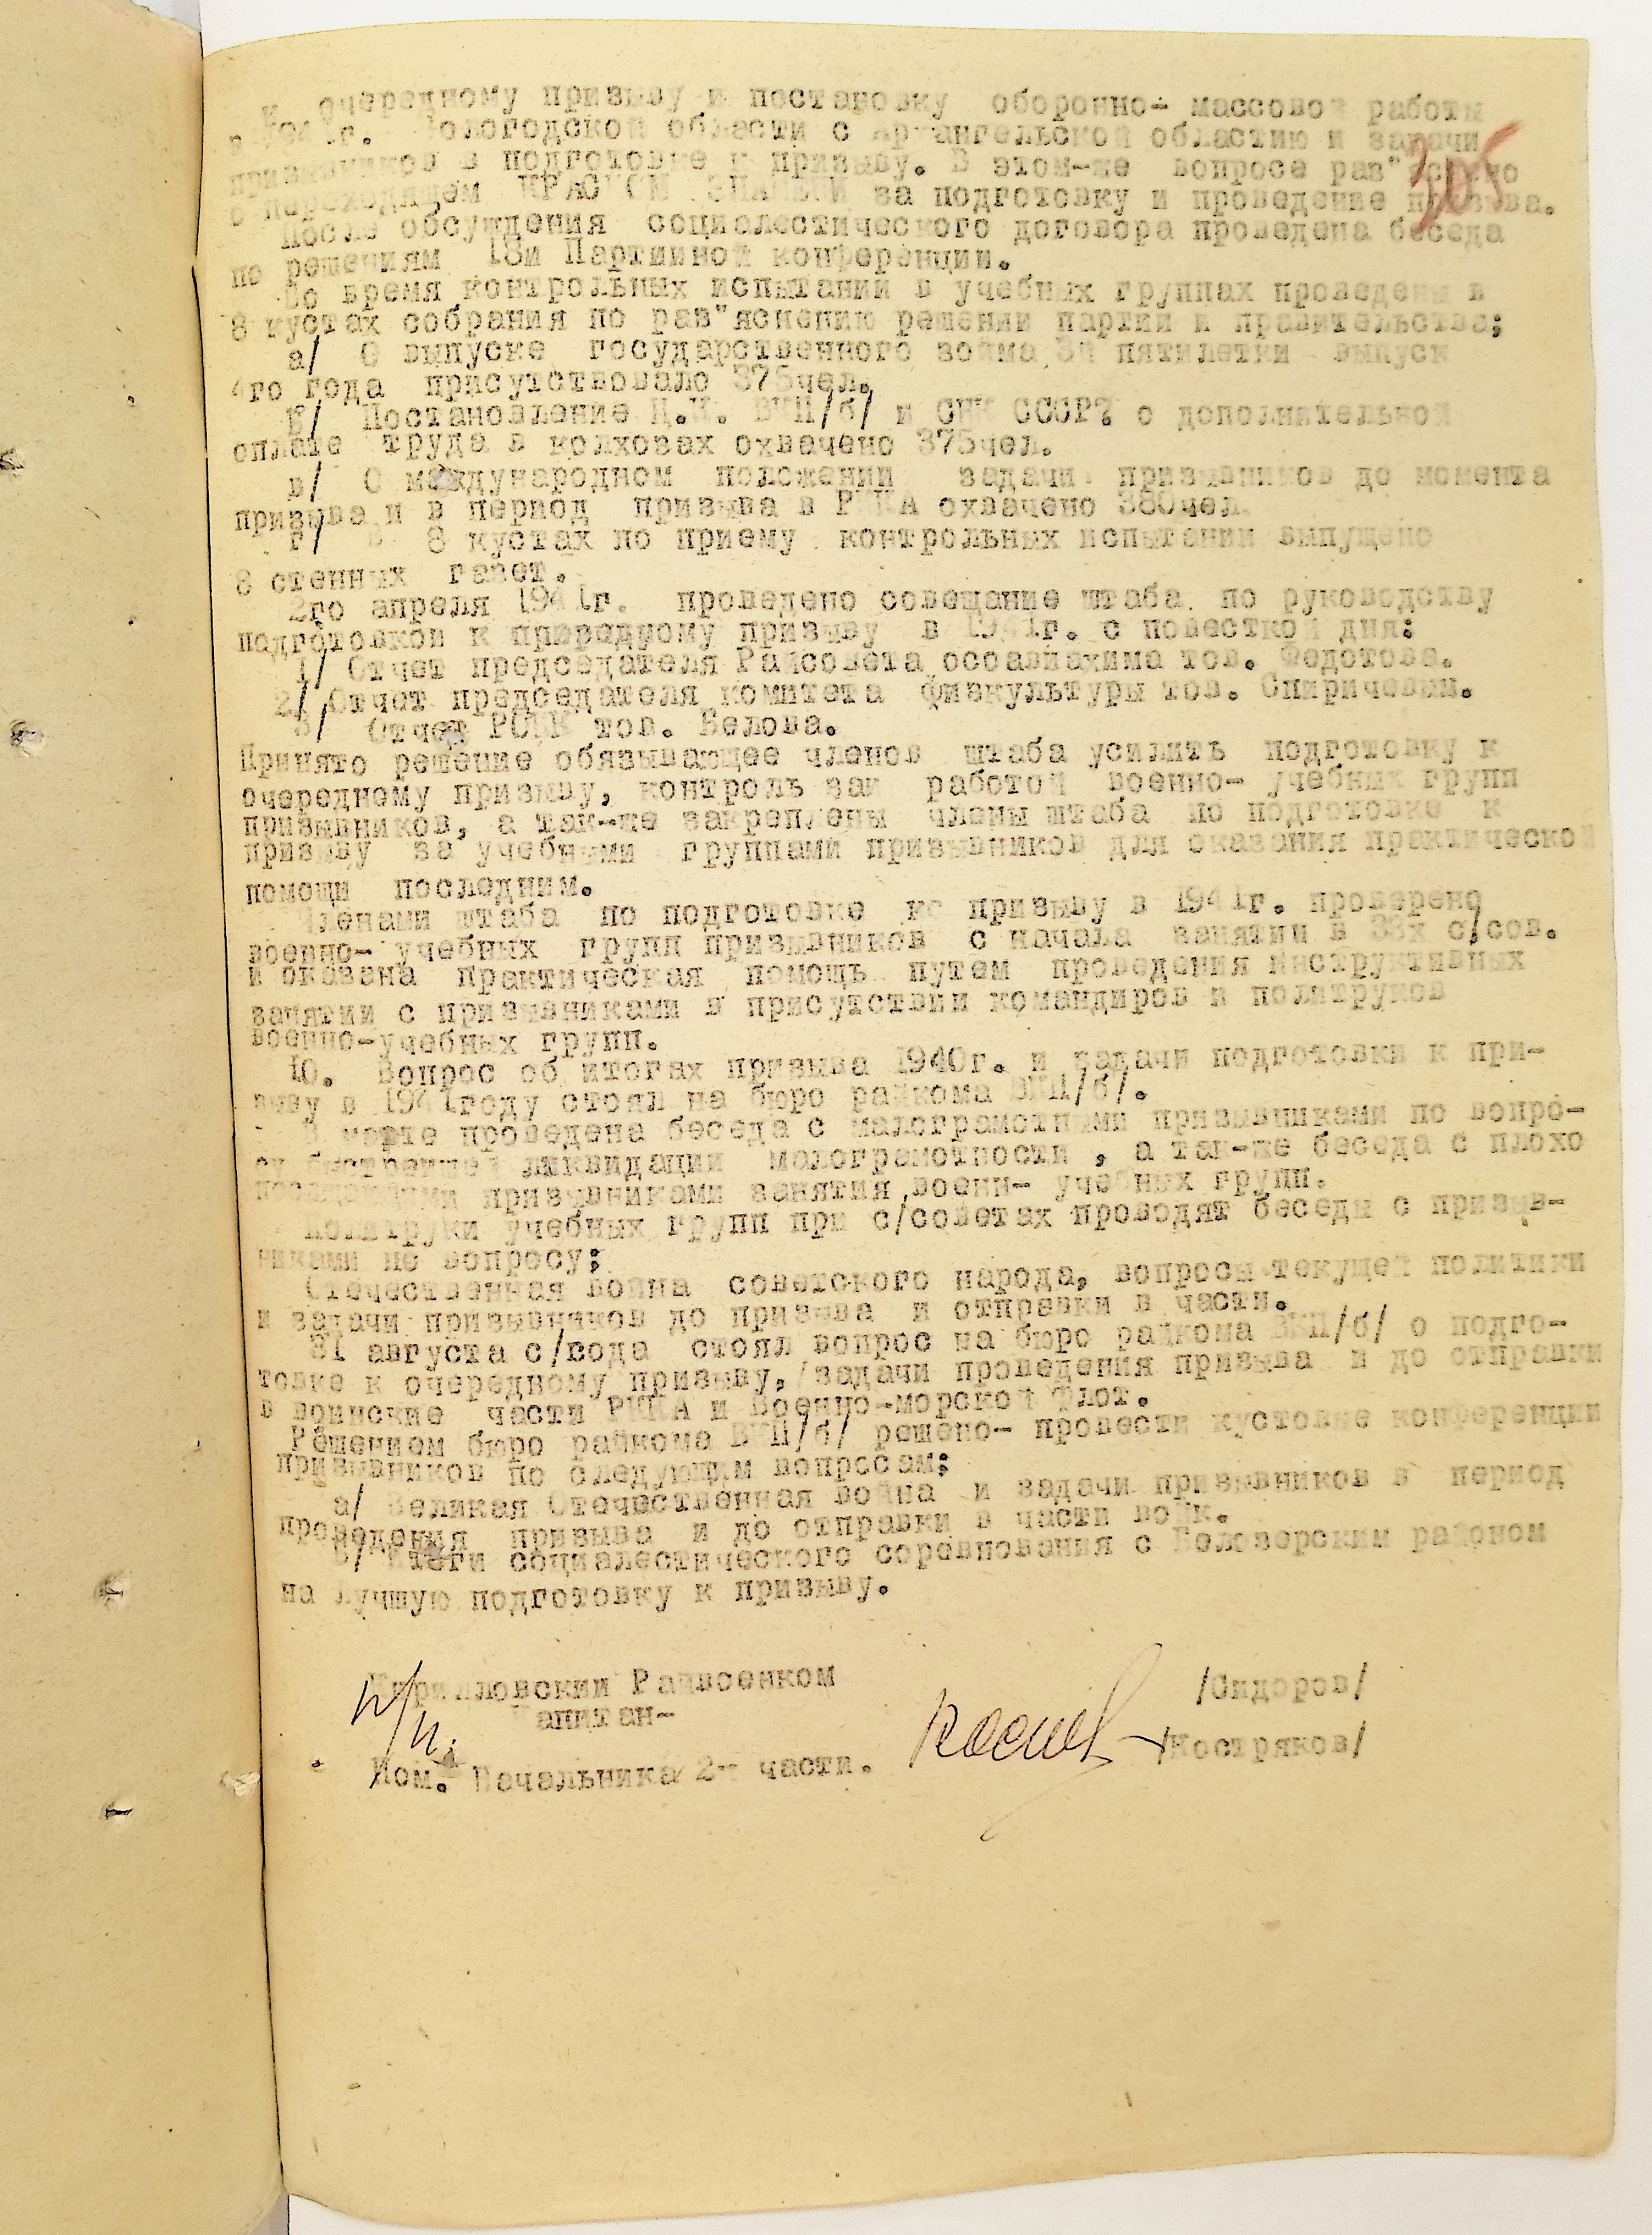 к очередному призыву и постановку оборонно- массовой работы
в г. Вологодской области с Архангельской областью и задачи
призывников в подготовке к призыву. В этом-же вопросе раз"яснено
о переходящем КРАСНОМ ЗНАМЕНИ за подготовку и проведение призыва.
305
После обсуждения социолестического договора проведена беседа
по решениям 18й Партийной конференции.
Во время контрольных испытаний в учебных группах проведены в
8 кустах собрания по раз"яснению решений партии и правительства;
а/ О выпуске государственного займа 3й пятилетки выпуск
4го года присутствовало 375чел.
Б/ Постановление Ц.К. ВКП/б/ и СНК СССР? о дополнительной
оплате труда в колхозах охвачено 375чел.
в/ О международном положении задачи призывников до момента
призыва и в период призыва в РККА охвачено 380чел.
г/ В 8 кустах по приему контрольных испытаний выпущено
8 стенных газет.
2го апреля 1941г. проведено совещание штаба по руководству
подготовкой к призыву в 1941г. с повесткой дня:
1/ Отчет председателя Райсовета осоавиахима тов. Федотова.
2/ Отчет председателя комитета физкультуры тов. Спиричевым.
3/ Отчет РОКК тов. Белова.
Принято решение обязывающее членов штаба усилить подготовку к
очередному призыву, контроль зай работой военно- учебных групп
призывников, а так-же закреплены члены штаба по подготовке к
призыву за учебными группами призывников для оказания практической
помощи последним.
Членами штаба по подготовке ко призыву в 1941г. проверено
военно- учебных групп призывников с начала занятий в 38х с/сов.
и оказана практическая помощь путем проведения инструктивных
занятий с призывниками в присутствии командиров и политруков
военно-учебных групп.
10. Вопрос об итогах призыва 1940г. и задачи подготовки к при-
зыву в 1941году стоял на бюро райкома ВКП/б/.
В марте проведена беседа с малограмотными призывниками по вопро-
су быстрейшей ликвидации малограмотности , а так-же беседа с плохо
посещающими призывниками занятия воени- учебных групп.
Политруки учебных групп при с/советах проводят беседы с призыв-
никами по вопросу;
Отечественная война советского народа, вопросы текущей политики
и задачи призывников до призыва и отправки в части.
31 августа с/года стоял вопрос на бюро райкома ВКП/б/ о подго-
товке к очередному призыву, задачи проведения призыва и до отправки
в воинские части РККА и Военно-морской флот.
Решением бюро райкома ВКП/б/ решено- провести кустовые конференции
призывников по следующим вопросам;
а/ Великая Отечественная война и задачи призывников в период
проведения призыва и до отправки в части войк.
б/ Итоги социалестического соревнования с Белозерским районом
на лучшую подготовку к призыву.
Кирилловский Райвоенком
Капитан-
/Сидоров/
п/п.
Пом. Начальника 2- части.
/Костряков/